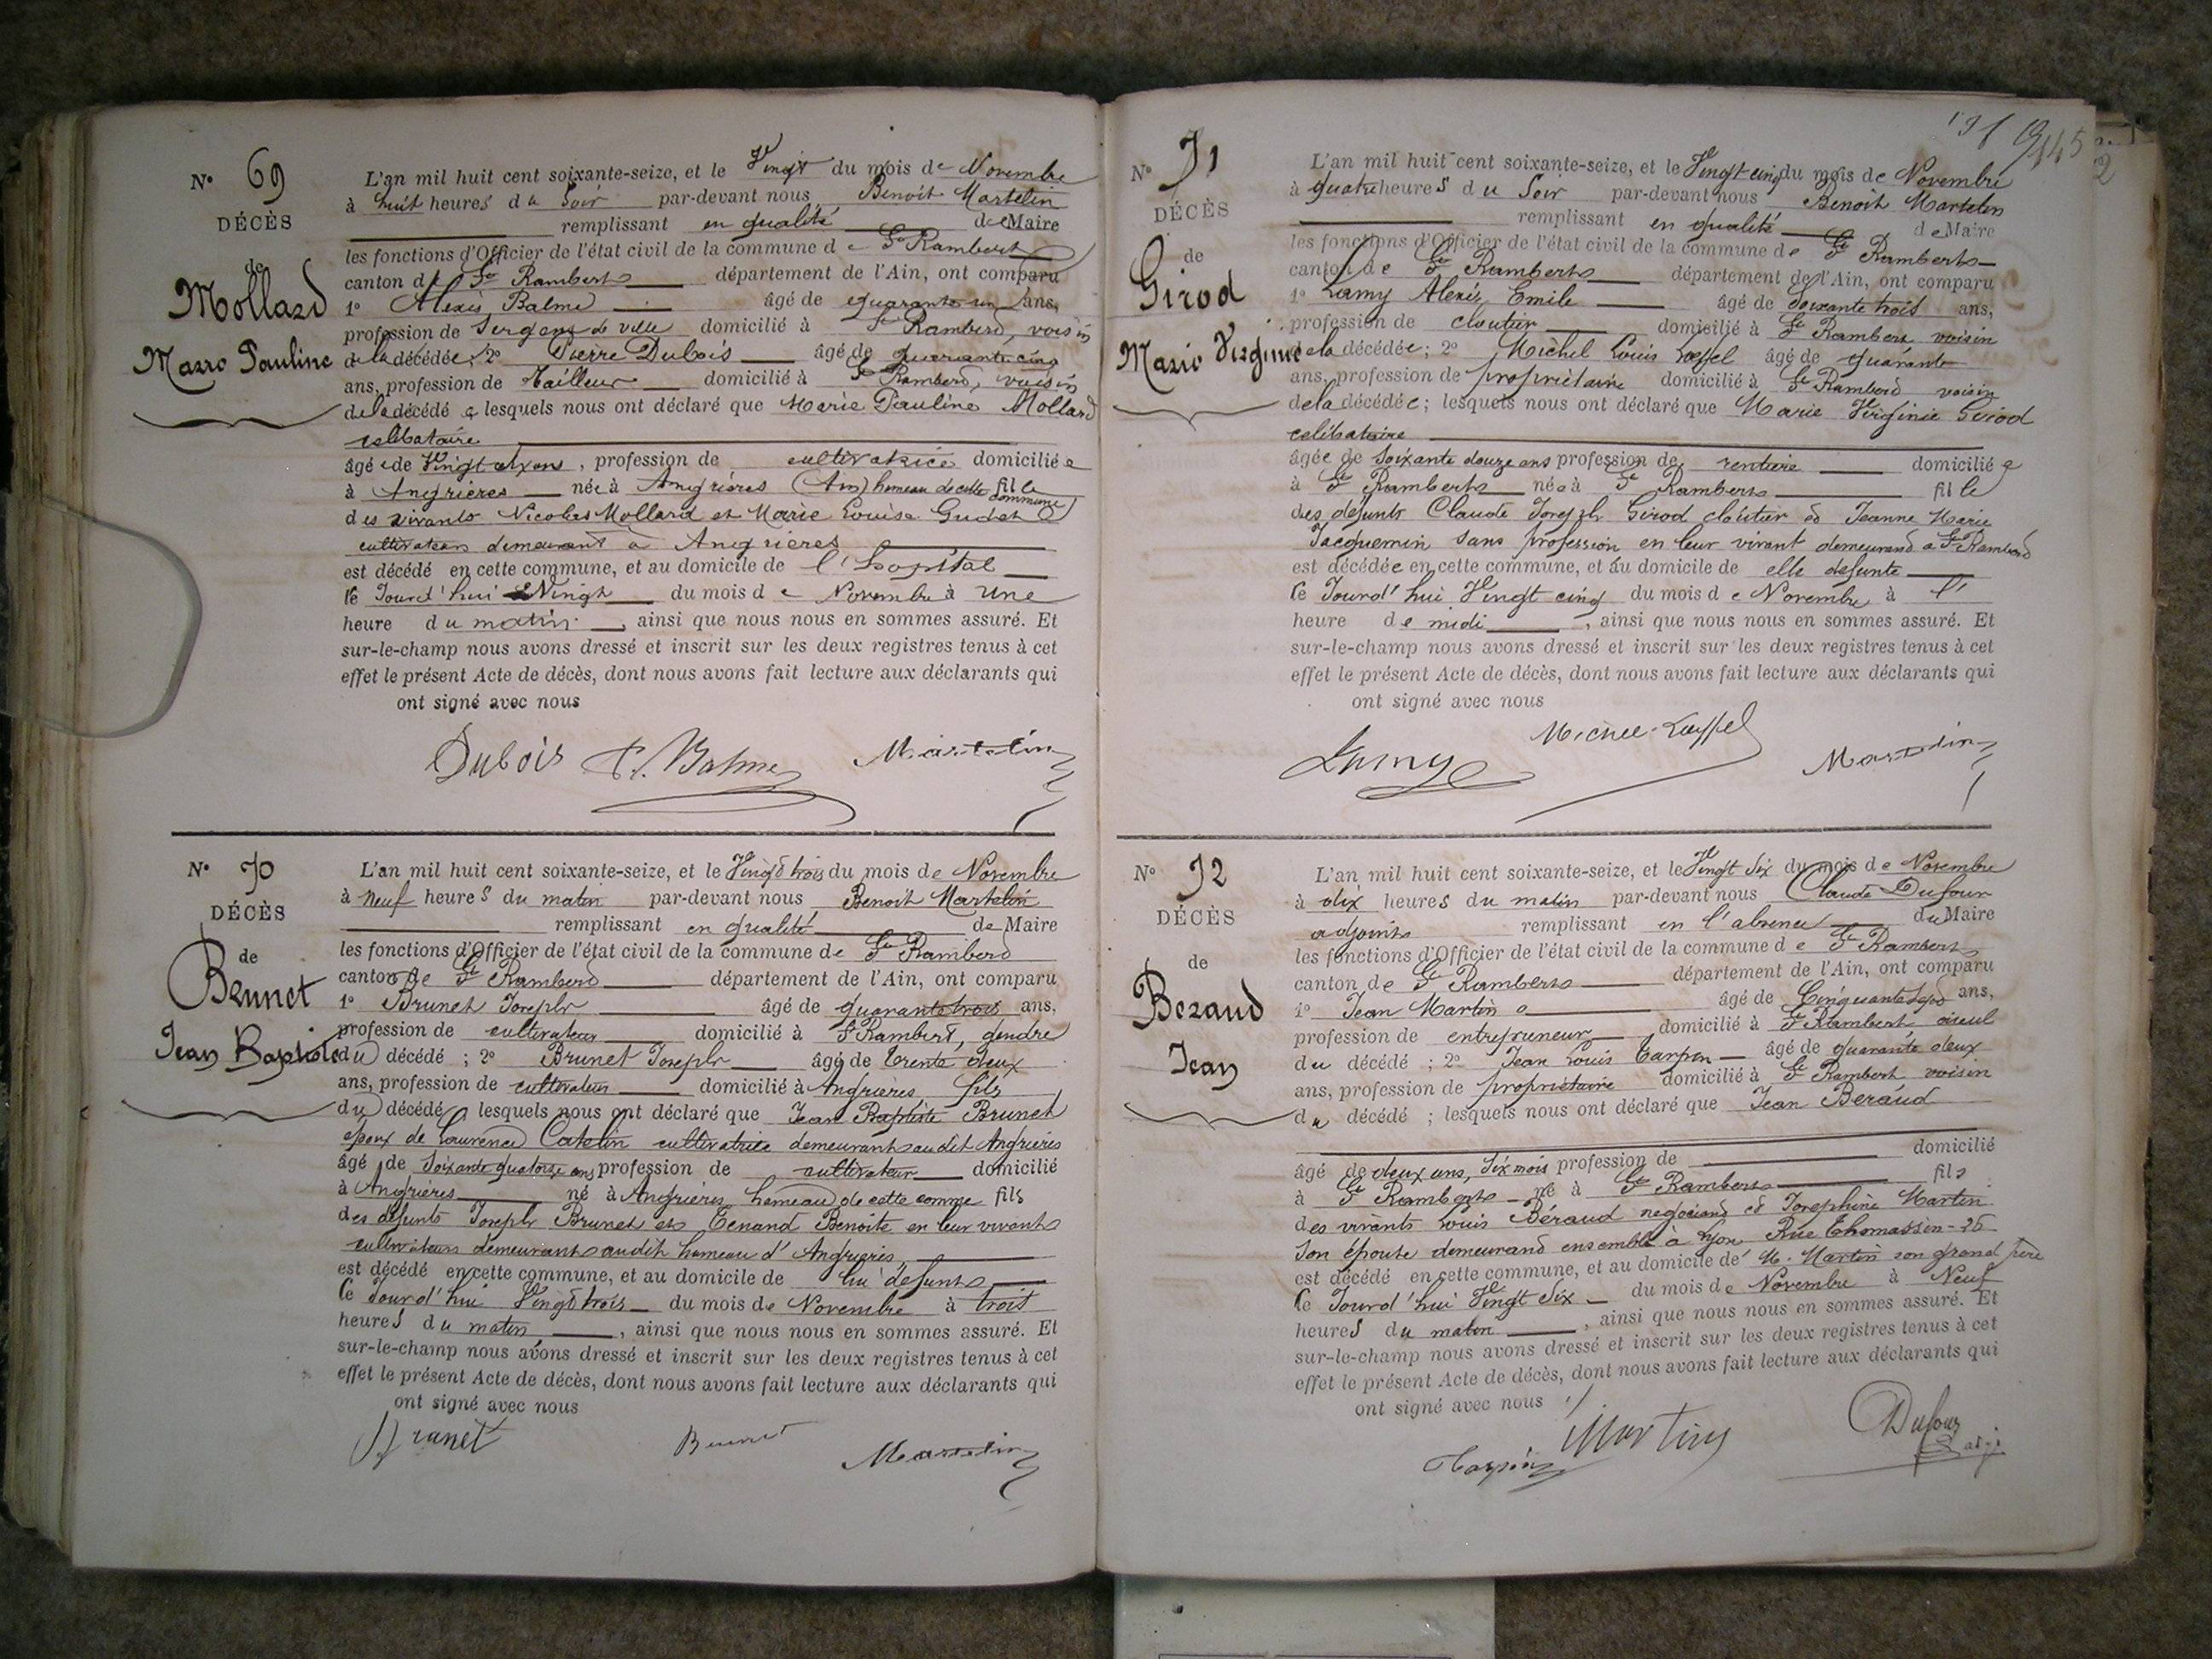 N° 69
DÉCÈS
de
Mollard
Marie Pauline
L'an mil huit cent soixante-seize, et le Vingt du mois de Novembre
à huit heures du Soir par-devant nous Benoit Martelin
remplissant en qualité de Maire
les fonctions d'Officier de l'état civil de la commune de St Rambert
canton de St Rambert département de l'Ain, ont comparu
1° Alexis Balme âgé de quarante un ans,
profession de Sergent de ville domicilié à St Rambert, voisin
de la décédée; 2° Pierre Dubois âgé de quarante cinq
ans, profession de Tailleur domicilié à St Rambert, voisin
de la décédée lesquels nous ont déclaré que Marie Pauline Mollard
celibataire
âgée de Vingt ans, profession de cultivatrice domiciliée
à Angrières née à Angrières (Ain) hameau de cette commune fille
des vivants Nicolas Mollard et Marie Louise Gudet
cultivateurs demeurant à Angrières
est décédé en cette commune, et au domicile de l'hopital
le Jourd'hui Vingt du mois de Novembre à une
heure du matin, ainsi que nous nous en sommes assuré. Et
sur-le-champ nous avons dressé et inscrit sur les deux registres tenus à cet
effet le présent Acte de décès, dont nous avons fait lecture aux déclarants qui
ont signé avec nous
Dubois Balme Martelin
N° 70
DÉCÈS
de
Brunet
Jean Baptiste
L'an mil huit cent soixante-seize, et le Vingt trois du mois de Novembre
à neuf heures du matin par-devant nous Benoit Martelin
remplissant en qualité de Maire
les fonctions d'Officier de l'état civil de la commune de St Rambert
canton de St Rambert département de l'Ain, ont comparu
1° Brunet Joseph âgé de quarante trois ans,
profession de cultivateur domicilié à St Rambert, gendre
du décédé; 2° Brunet Joseph âgé de trente deux
ans, profession de cultivateur domicilié à Angrières, fils
du décédé lesquels nous ont déclaré que Jean Baptiste Brunet
epoux de Laurence Catelin cultivatrice demeurant audit Angrieres
âgé de Soixante quatorze ans profession de cultivateur domicilié
à Angrières né à Angrières, hameau de cette comme fils
des defunts Joseph Brunet et Tenand Benoite en leur vivants
cultivateurs demeurant audit hameau d'Angrieres,
est décédé en cette commune, et au domicile de lui defunt
le Jourd'hui Vingt trois du mois de Novembre à trois
heures du matin, ainsi que nous nous en sommes assuré. Et
sur-le-champ nous avons dressé et inscrit sur les deux registres tenus à cet
effet le présent Acte de décès, dont nous avons fait lecture aux déclarants qui
ont signé avec nous
Brunet Brunet Martelin
145
2
N° 71
DÉCÈS
de
Girod
Marie Virginie
L'an mil huit cent soixante-seize, et le Vingt cinq du mois de Novembre
à quatre heures du Soir par-devant nous Benoit Martelin
remplissant en qualité de Maire
les fonctions d'Officier de l'état civil de la commune de St Rambert
canton de St Rambert département de l'Ain, ont comparu
1° Lamy Alexis, Emile âgé de Soixante trois ans,
profession de cloutier domicilié à St Rambert voisin
de la décédée; 2° Michel Louis Loeffel âgé de quarante
ans, profession de propriètaire domicilié à St Rambert voisin
de la décédée; lesquels nous ont déclaré que Marie Virginie Girod
celibataire
âgée de Soixante douze ans profession de rentiere domiciliée
à St Rambert née à St Rambert fille
des defunts Claude Joseph Girod cloutier et Jeanne Marie
Jacquemin sans profession en leur vivant demeurant a St Rambert
est décédée en cette commune, et au domicile de elle defunte
le Jourd'hui Vingt cinq du mois de Novembre à l'
heure de midi, ainsi que nous nous en sommes assuré. Et
sur-le-champ nous avons dressé et inscrit sur les deux registres tenus à cet
effet le présent Acte de décès, dont nous avons fait lecture aux déclarants qui
ont signé avec nous
Lamy Martelin
N° 72
DÉCÈS
de
Beraud
Jean
L'an mil huit cent soixante-seize, et le Vingt Six du mois de Novembre
à dix heures du matin par-devant nous Claude Dufour
adjoint remplissant en l'absence du Maire
les fonctions d'Officier de l'état civil de la commune de St Rambert
canton de St Rambert département de l'Ain, ont comparu
1° Jean Martin âgé de Cinquante sept ans,
profession de entrepreneur domicilié à St Rambert aieul
du décédé; 2° Jean Louis Tarpin âgé de quarante deux
ans, profession de propriétaire domicilié à St Rambert voisin
du décédé; lesquels nous ont déclaré que Jean Béraud
âgé de deux ans, Six mois profession de domicilié
à St Rambert né à St Rambert fils
des vivants Louis Béraud negociant et Josephine Martin
Son épouse demeurant ensemble à Lyon Rue Thomassin-25
est décédé en cette commune, et au domicile de M. Martin son grand père
le Jourd'hui Vingt Six du mois de Novembre à Neuf
heures du matin, ainsi que nous nous en sommes assuré. Et
sur-le-champ nous avons dressé et inscrit sur les deux registres tenus à cet
effet le présent Acte de décès, dont nous avons fait lecture aux déclarants qui
ont signé avec nous
Tarpin Martin Dufour adj